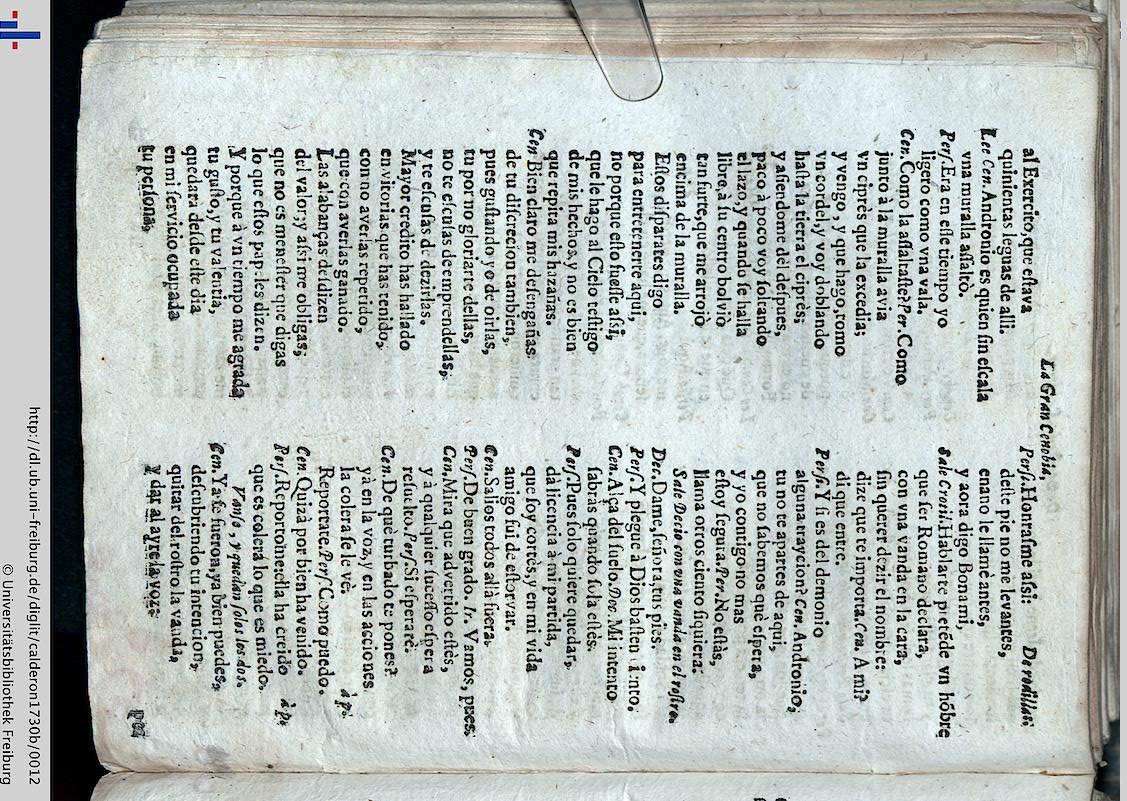 La Gran Cenobia,
al Exercito, que eſtava
quinientas leguas de alli.
Lee Cen. Andronio es quien ſin eſcala
vna muralla aſſaltò.
Perſ. Era en eſte tiempo yo
ligero como vna vala.
Cen. Como la aſſaltaſte? Per. Como
junto à la muralla avia
vn ciprès que la excedia;
y vengo, y que hago, tomo
vn cordel, y voy doblando
haſta la tierra el ciprès;
y aſiendome del deſpues,
paco à poco voy ſoltando
el lazo, y quando ſe halla
libre, à ſu centro bolviò
tan fuerte, que me arrojò
encima de la muralla.
Eſtos diſparates digo
para entretenerte aqui,
no porque eſto fueſſe aſsi,
que le hago al Cielo teſtigo
de mis hechos, y no es bien
que repita mis hazañas.
Cen Bien claro me deſengañas
de tu diſcrecion tambien,
pues guſtando yo de oirlas,
tu por no gloriarte dellas,
no te eſcuſas de emprendellas,
y te eſcuſas de dezirlas.
Mayor credito has hallado
en vitorias que has tenido,
con no averlas repetido,
que con averlas ganado.
Las alabanças deſdizen
del valor; y aſsi me obligas;
que no es meneſter que digas
lo que eſtos papeles dizen.
Y porque à vn tiempo me agrada
tu guſto, y tu valentia,
quedara deſde eſte dia
en mi ſervicio ocupada
tu perſona.
Perſ. Honraſme aſsi: De rodillas:
deſte pie no me levantes,
enano le llamè antes,
y aora digo Bonami,
Sale Criàd. Hablarte pretẽde vn hõbre
que ſer Romano declara,
con vna vanda en la cara,
ſin querer dezir el nombre:
dize que te importa. Cen. A mi?
di que entre.
Perſ. Y ſi es del demonio
alguna trayciòn? Cen. Andronio,
tu no te apartes de aqui,
que no ſabemos què eſpera,
y yo contigo no mas
eſtoy ſegura. Per. No eſtàs,
llama otros ciento ſiquiera.
Sale Decio con vna vanda en el roſtro.
Dec. Dame, ſeñora, tus pies.
Perſ. Y plegue à Dios baſten
Cen. Alça del ſuelo. Dec. Mi intento
ſabràs quando ſola eſtès.
Perſ. Pues ſolo quiere quedar,
dà licencia à mi partida,
que ſoy cortès, y en mi vida
amigo fui de eſtorvar.
Cen. Salios todos allà fuera.
Perſ. De buen grado. Ir. Vamos, pues
Cen. Mira que advertido eſtès,
y à qualquier ſuceſſo eſpera
reſuelto. Perſ. Si eſperarè.
Cen. De que turbado te pones?
yà en la voz, y en las acciones
la colera ſe le vè. à p.
Reportate. Perſ. Como puedo.
Cen. Quizà por bien ha venido.
Perſ. Reportome: ella ha creido à p.
que es colera lo que es miedo.
Vanſe, y quedan ſolos los dos.
Cen. Ya ſe fueron, ya bien puedes,
deſcubriendo tu intencion,
quitar del roſtro la vanda,
y dar al ayre la voz.
http://dl.ub.uni-freiburg.de/diglit/calderon1730b/0012
© Universitätsbibliothek Freiburg